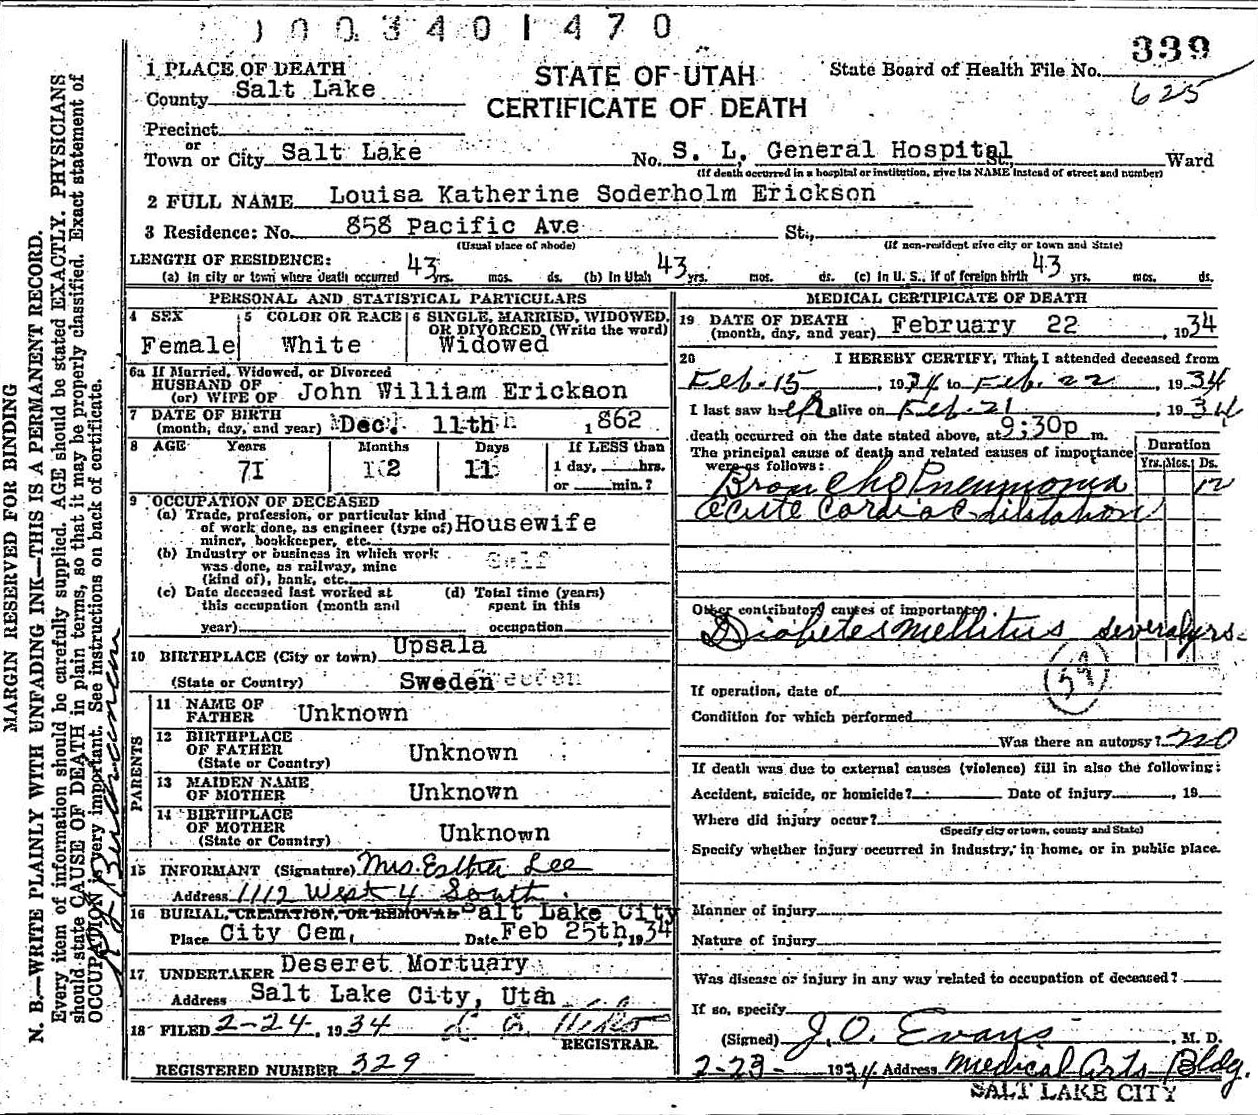 0003401470
1 PLACE OF DEATH
STATE OF UTAH
CERTIFICATE OF DEATH
State Board of Health File No. 339
625
County Salt Lake
Precinct
or
Town or City Salt Lake No. S. L. General Hospital St., Ward
(If death occurred in a hospital or institution, give its NAME instead of street and number)
2 FULL NAME Louisa Katherine Soderholm Erickson
3 Residence: No. 858 Pacific Ave St.,
(Usual place of abode) (If non-resident give city or town and State)
LENGTH OF RESIDENCE:
(a) In city or town where death occurred 43 yrs. mos. ds. (b) In Utah 43 yrs. mos. ds. (c) In U. S., if of foreign birth 43 yrs. mos. ds.
PERSONAL AND STATISTICAL PARTICULARS
4 SEX
Female
5 COLOR OR RACE
White
6 SINGLE, MARRIED, WIDOWED,
OR DIVORCED (Write the word)
Widowed
6a If Married, Widowed, or Divorced
HUSBAND OF
(or) WIFE OF John William Erickson
7 DATE OF BIRTH
(month, day, and year) Dec. 11th 1862
8 AGE Years Months Days If LESS than
71 2 11 1 day, hrs.
or min.?
9 OCCUPATION OF DECEASED
(a) Trade, profession, or particular kind
of work done, as engineer (type of)
miner, bookkeeper, etc. Housewife
(b) Industry or business in which work
was done, as railway, mine
(kind of), bank, etc. Self
(c) Date deceased last worked at
this occupation (month and
year)
(d) Total time (years)
spent in this
occupation
10 BIRTHPLACE (City or town) Upsala
(State or Country) Sweden
PARENTS
11 NAME OF
FATHER Unknown
12 BIRTHPLACE
OF FATHER
(State or Country) Unknown
13 MAIDEN NAME
OF MOTHER Unknown
14 BIRTHPLACE
OF MOTHER
(State or Country) Unknown
15 INFORMANT (Signature) Mrs. Esther Lee
Address 1112 West 4 South.
16 BURIAL, CREMATION, OR REMOVAL Salt Lake City
Place City Cem. Date Feb 25th, 1934
17 UNDERTAKER Deseret Mortuary
Address Salt Lake City, Utah
18 FILED 2-24, 1934
REGISTRAR.
REGISTERED NUMBER 329
MEDICAL CERTIFICATE OF DEATH
19 DATE OF DEATH
(month, day, and year) February 22, 1934
20 I HEREBY CERTIFY, That I attended deceased from
Feb. 15, 1934 to Feb. 22, 1934
I last saw her alive on Feb. 21 1934
death occurred on the date stated above, at 9:30p m.
The principal cause of death and related causes of importance
were as follows:
Duration
Yrs. Mos. Ds.
Broncho Pneumonia 12
acute cardiac dilatation
Other contributory causes of importance
Diabetes mellitus several yrs.
59
If operation, date of
Condition for which performed
Was there an autopsy? no
If death was due to external causes (violence) fill in also the following:
Accident, suicide, or homicide? Date of injury, 19
Where did injury occur?
(Specify city or town, county and State)
Specify whether injury occurred in industry, in home, or in public place.
Manner of injury
Nature of injury
Was disease or injury in any way related to occupation of deceased?
If so, specify
(Signed) J. O. Evans, M. D.
2-23- 1934 Address Medical Arts Bldg.
SALT LAKE CITY
MARGIN RESERVED FOR BINDING
N. B.—WRITE PLAINLY WITH UNFADING INK—THIS IS A PERMANENT RECORD.
Every item of information should be carefully supplied. AGE should be stated EXACTLY. PHYSICIANS
should state CAUSE OF DEATH in plain terms, so that it may be properly classified. Exact statement of
OCCUPATION is very important. See instructions on back of certificate.